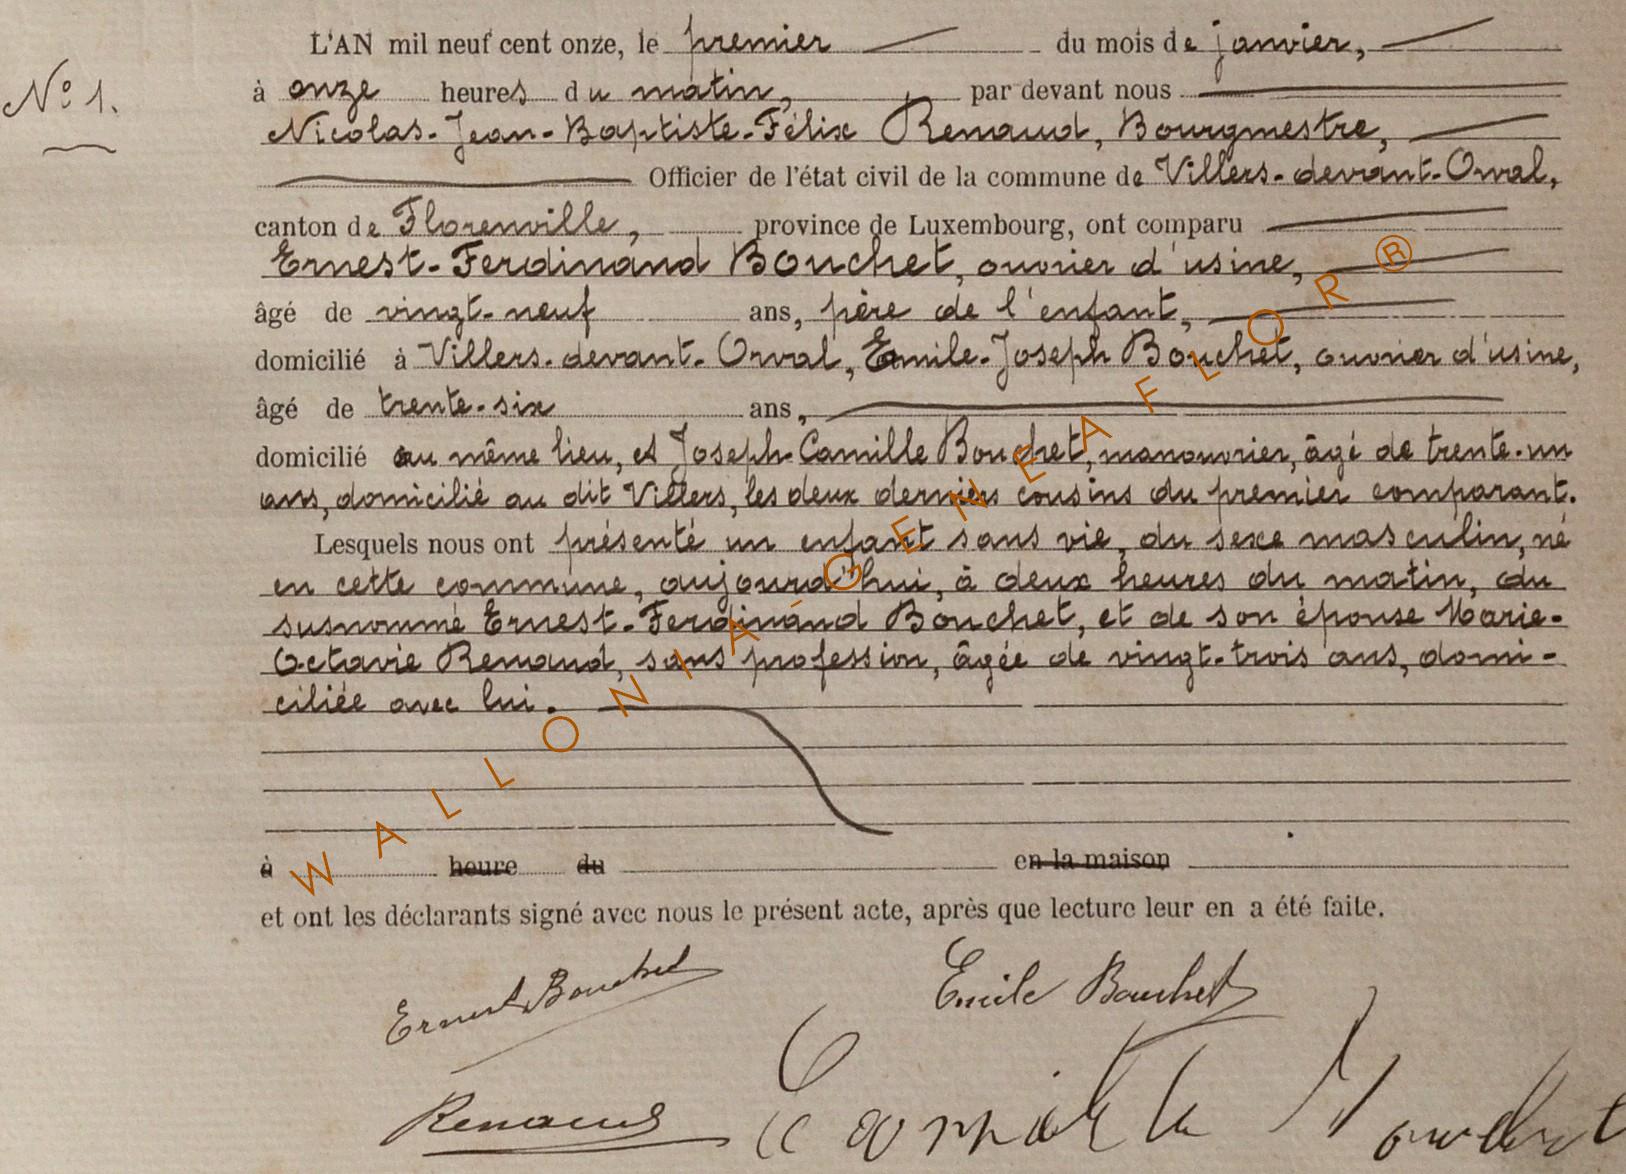 L'AN mil neuf cent onze, le premier du mois de janvier,
N° 1.
à onze heures du matin, par devant nous
Nicolas-Jean-Baptiste-Félix Renaud, Bourgmestre,
Officier de l'état civil de la commune de Villers-devant-Orval,
canton de Florenville, province de Luxembourg, ont comparu
Ernest-Ferdinand Bouchet, ouvrier d'usine,
âgé de vingt-neuf ans, père de l'enfant,
domicilié à Villers-devant-Orval, Emile-Joseph Bouchet, ouvrier d'usine,
âgé de trente-six ans,
domicilié au même lieu, et Joseph-Camille Bouchet, manouvrier, âgé de trente-un
ans, domicilié au dit Villers, les deux derniers cousins du premier comparant.
Lesquels nous ont présenté un enfant sans vie, du sexe masculin, né
en cette commune, aujourd'hui, à deux heures du matin, du
susnommé Ernest-Ferdinand Bouchet, et de son épouse Marie-
Octavie Renaud, sans profession, âgée de vingt-trois ans, domi-
ciliée avec lui.
à heure du en la maison
et ont les déclarants signé avec nous le présent acte, après que lecture leur en a été faite.
Ernest Bouchet Emile Bouchet
Renaud Camille Bouchet
WALLONIA-GENEAFLOR®